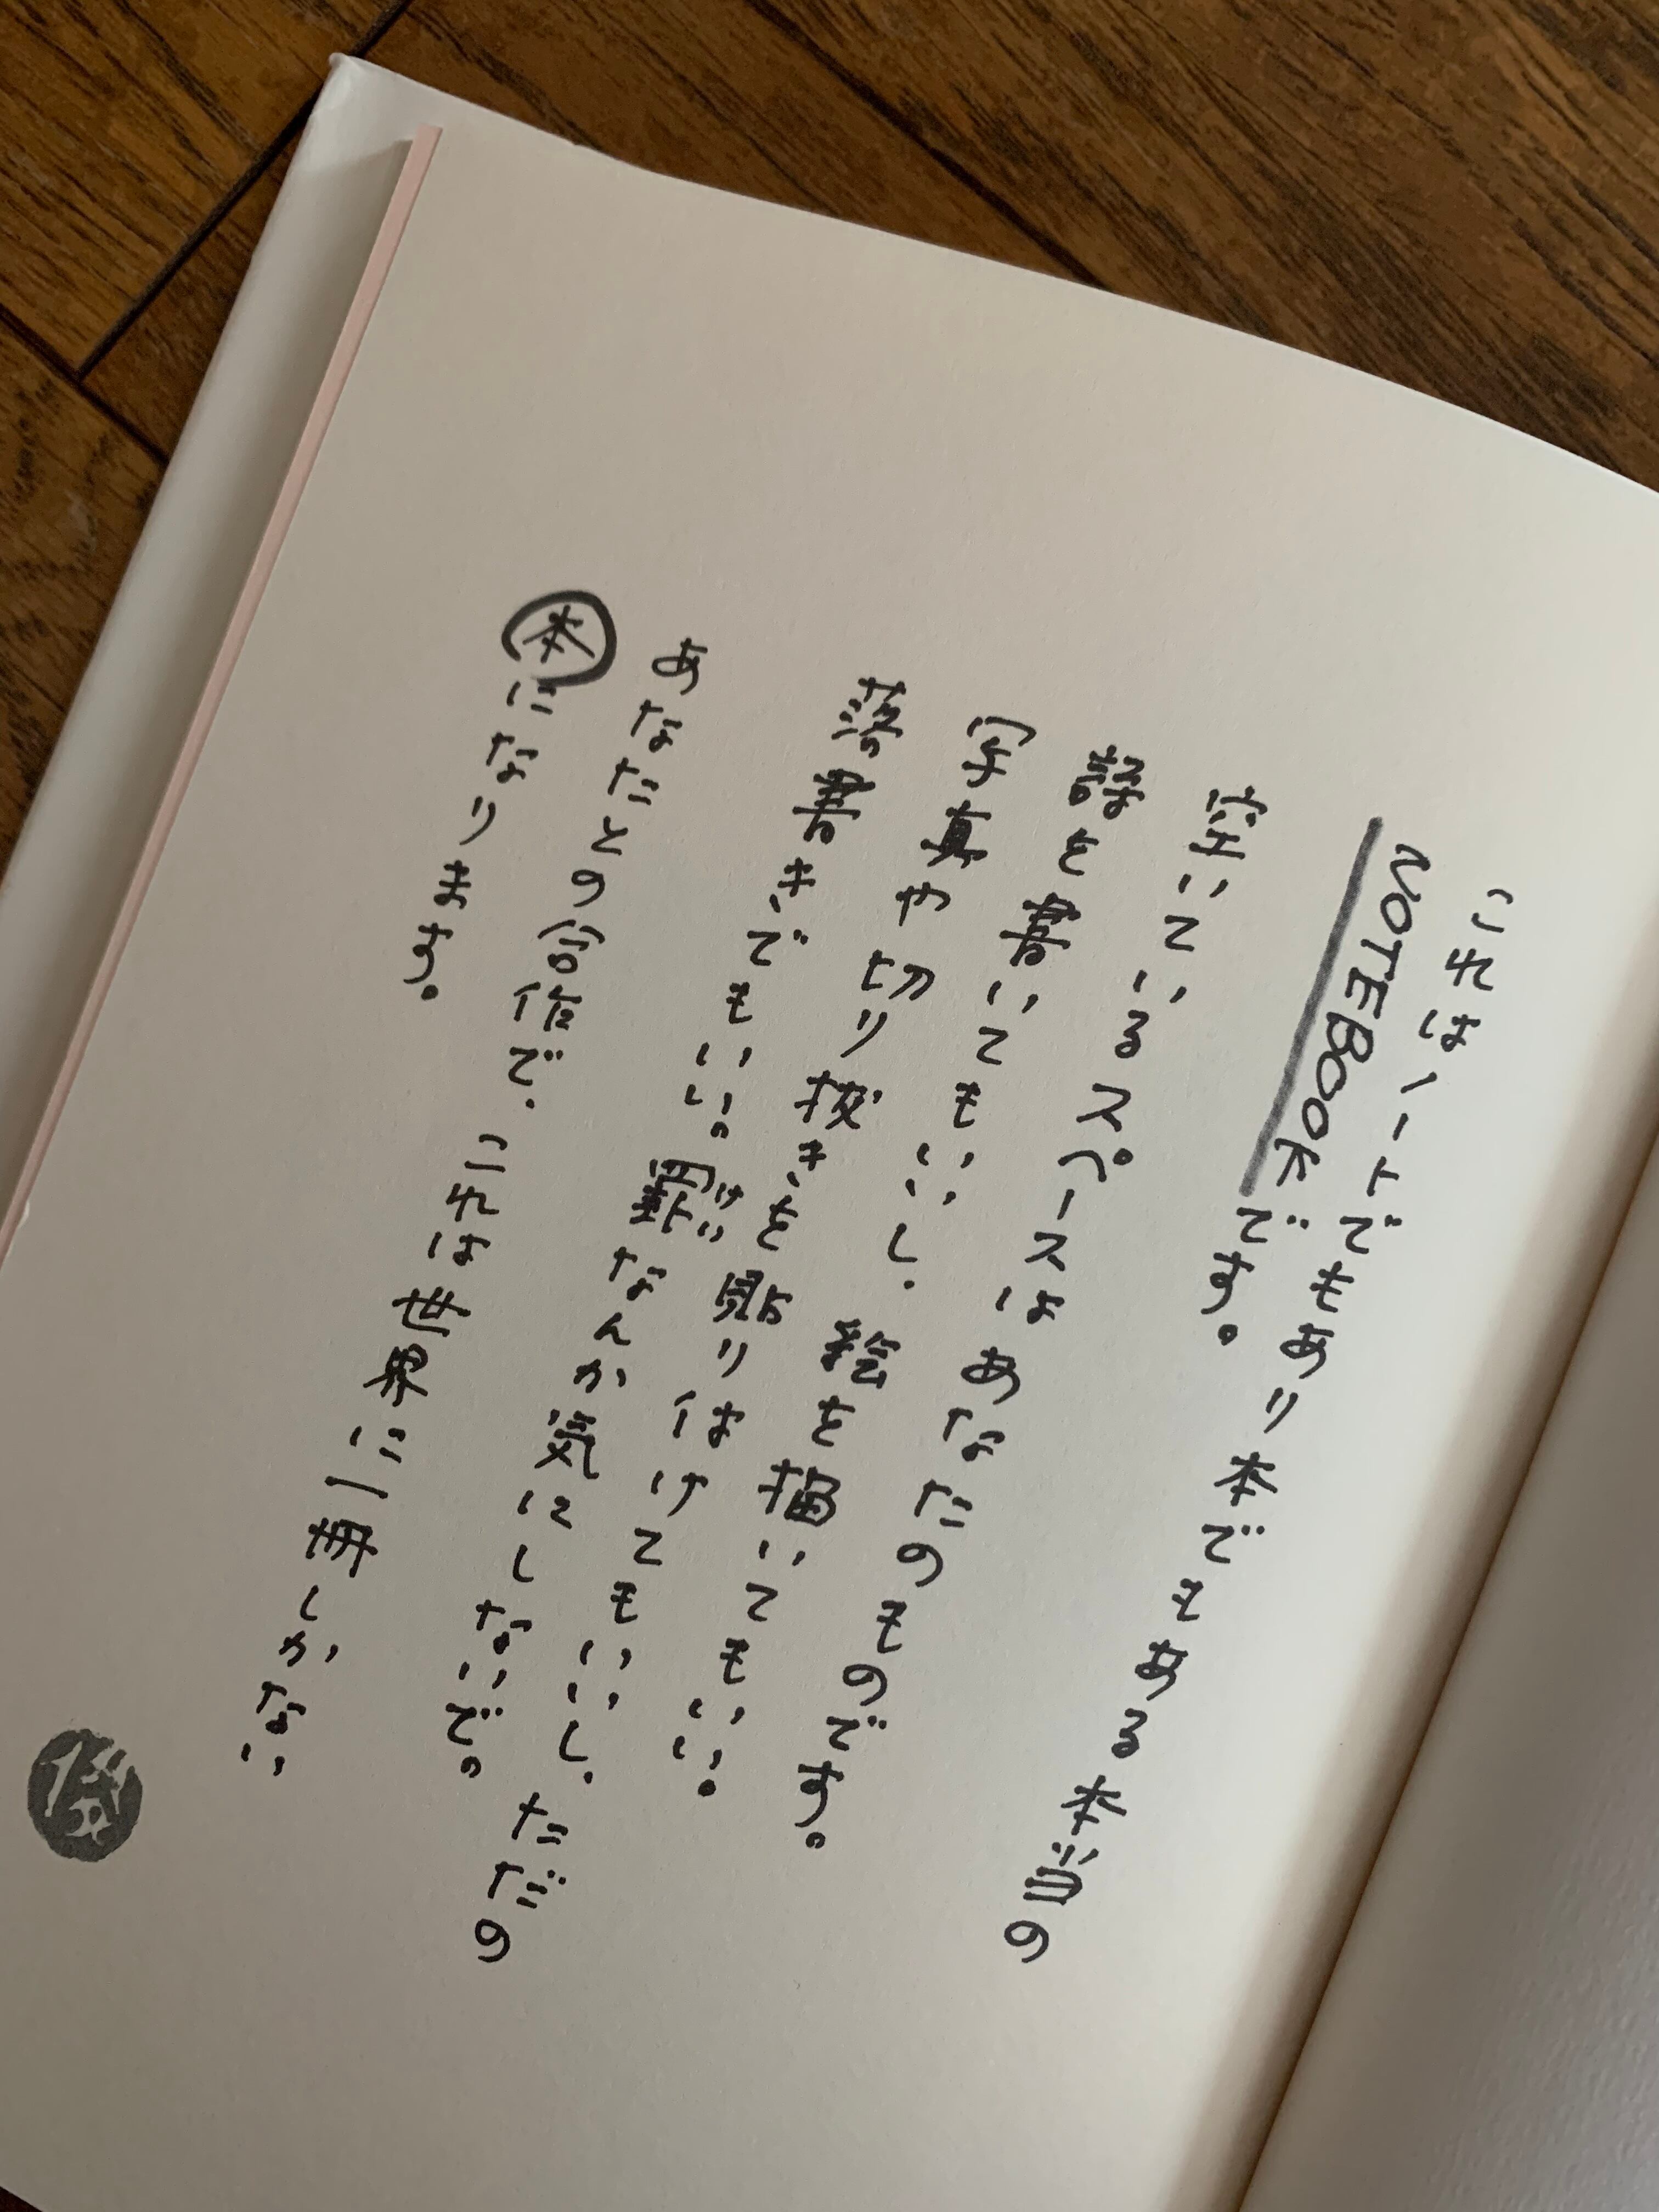 これはノートでもあり本でもある本当の
NOTEBOOKです。
空いているスペースはあなたのものです。
詩を書いてもいいし、絵を描いてもいい。
写真や切り抜きを貼り付けてもいいし、ただの
落書きでもいい。罫なんか気にしないで。
けい
あなたとの合作で、これは世界に一冊しかない
本になります。